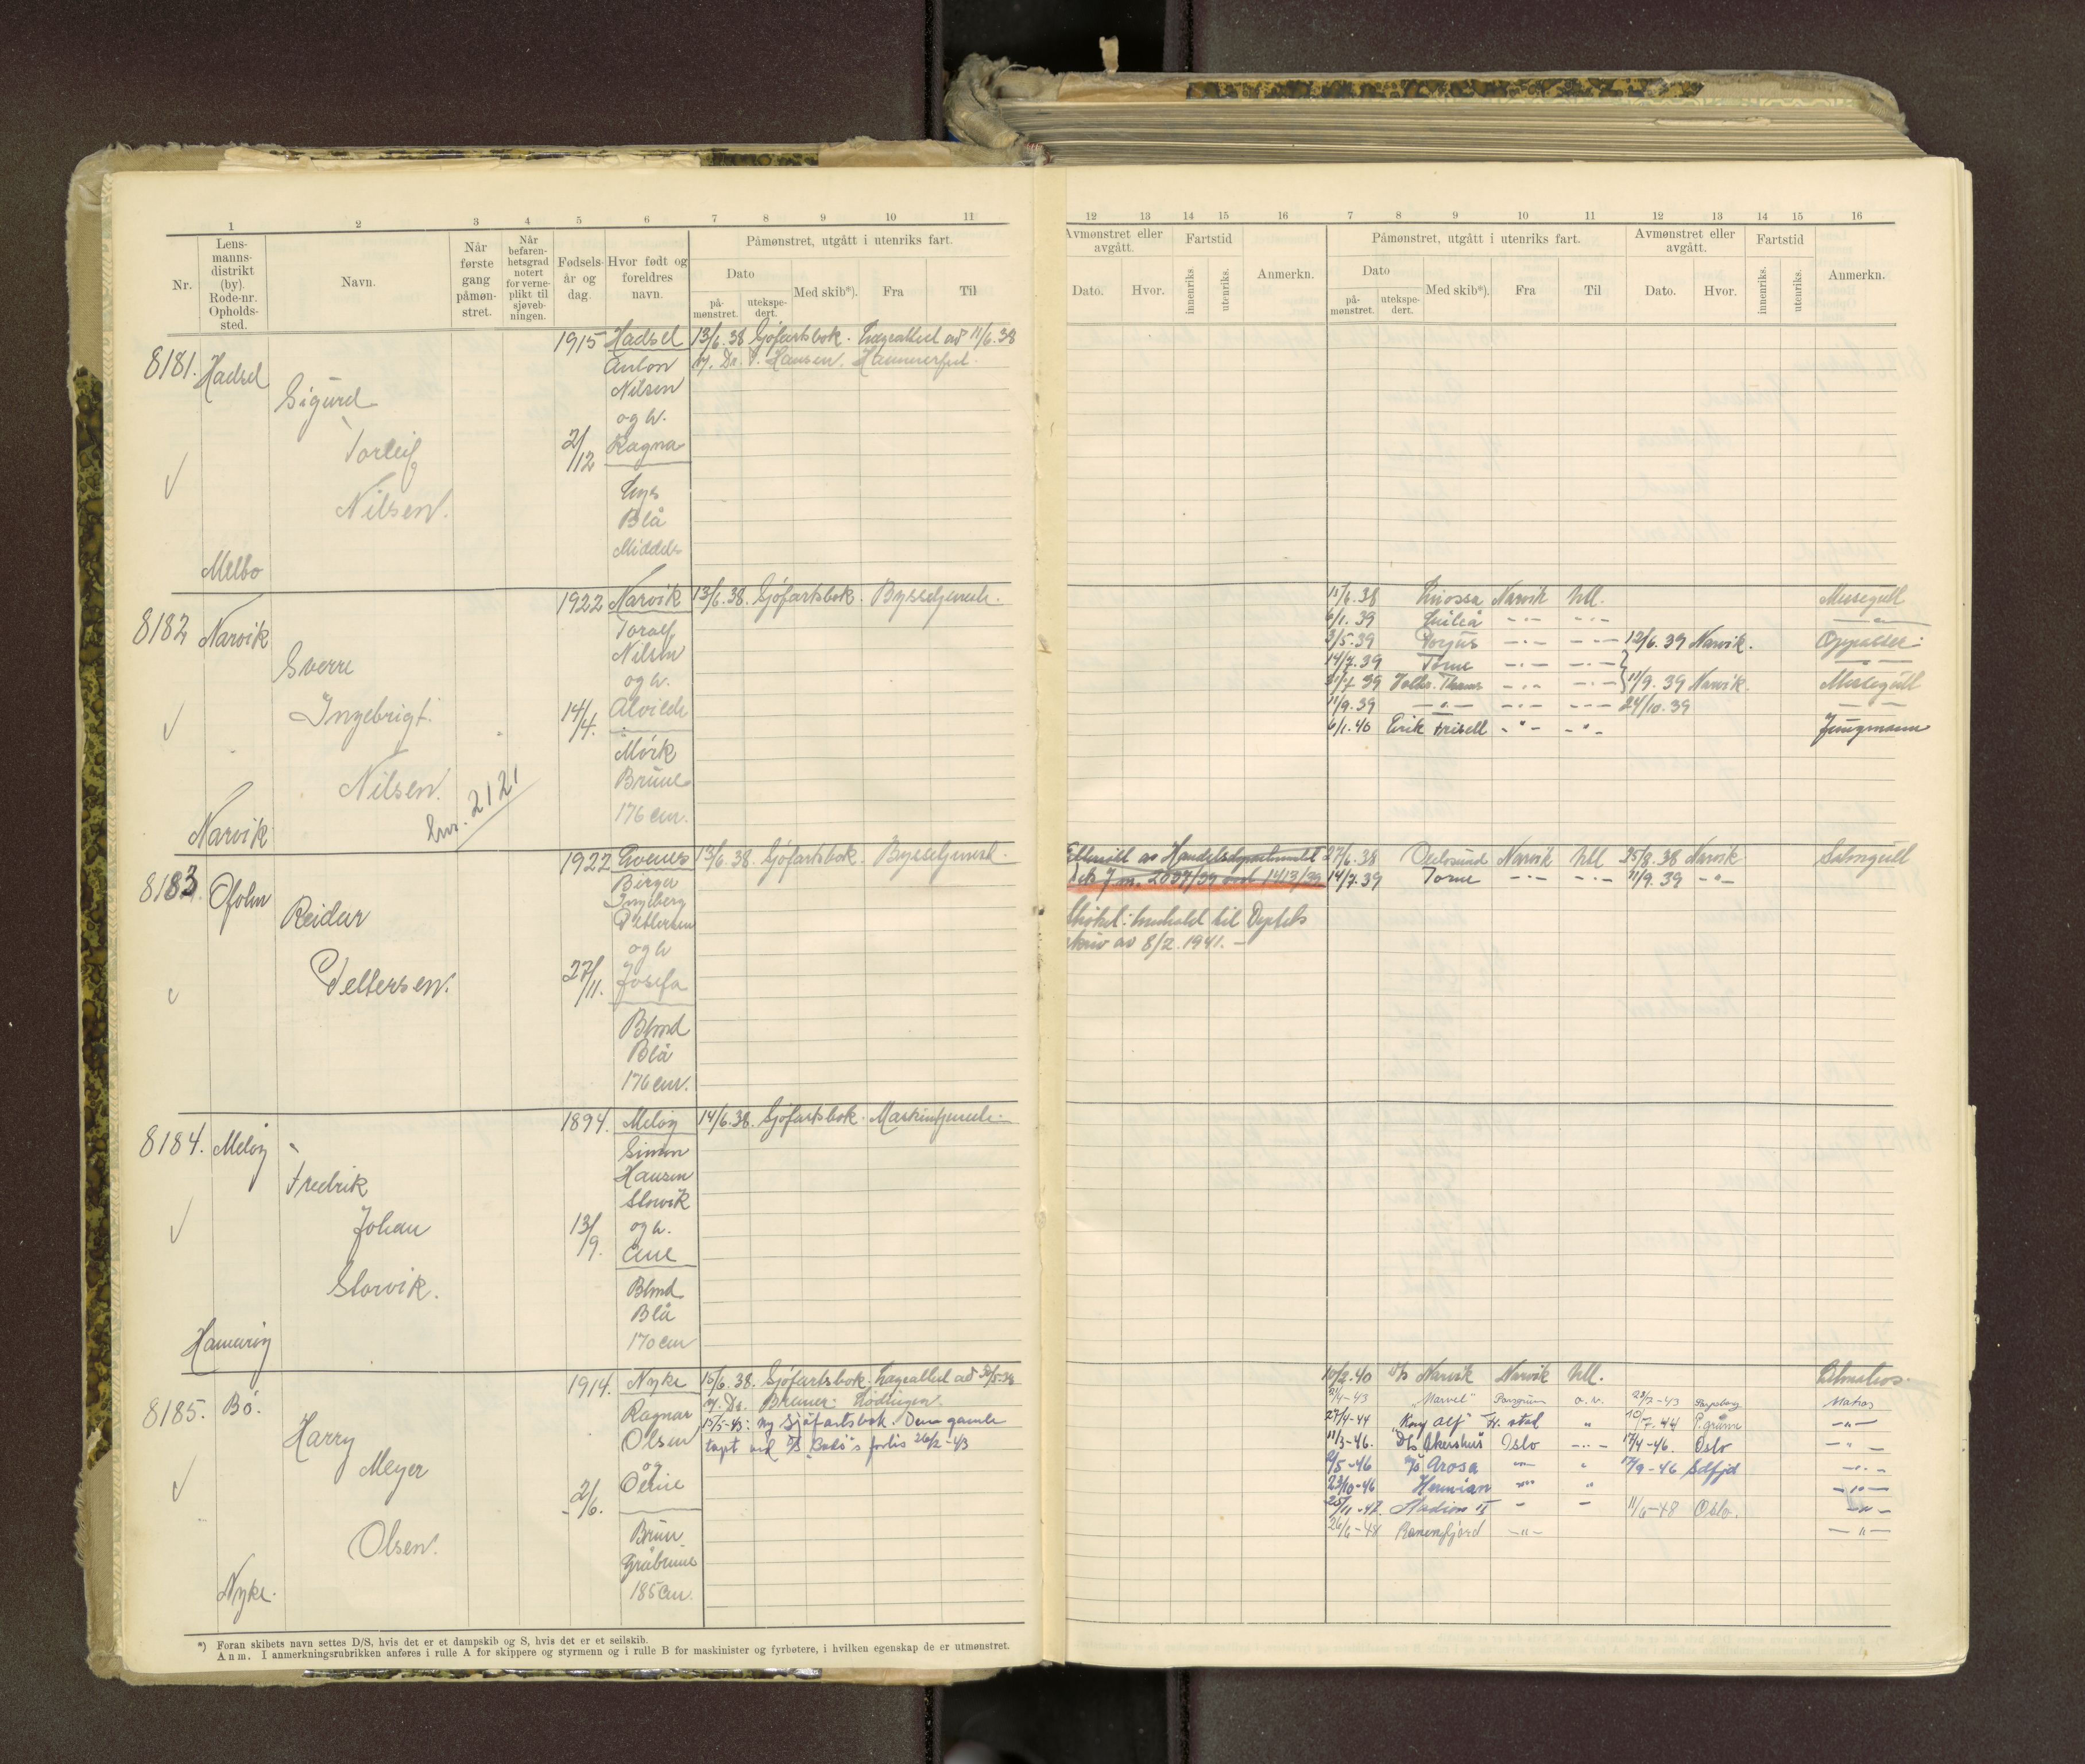 1 2 3 4 5 6 7 8 9 10 11
Nr.
Lens-
manns-
distrikt
(by).
Rode-nr.
Opholds-
sted.
Navn.
Når
første
gang
påmøn-
stret.
Når
befaren-
hetsgrad
notert
for verne-
plikt til
sjøveb-
ningen.
Fødsels-
år og
dag.
Hvor født og
foreldres
navn.
Påmønstret, utgått i utenriks fart.
Dato
på-
mønstret.
utekspe-
dert.
Med skib*).
Fra
Til
8181. Hadsel
Sigurd
Torleif
Nilsen.
Melbo
1915
2/12
Hadsel
Anton
Nilsen
og h.
Ragna
Lys
Blå
Middels
13/6.38 Sjøfartsbok. Lægeattest av 11/6.38
Hansen. Hammerfest.
8182 Narvik
Sverre
Ingebrigt
Nilsen.
Narvik
2121
1922
14/4.
Narvik
Toralf
Nilsen
og h.
Alvilde
Mørk
Brune
176 cm.
13/6.38. Sjøfartsbok. Byssetjeneste.
8183. Ofoten
Reidar
Pettersen.
1922
27/11.
Evenes
Birger
Ingeberg
Pettersen
og h
Josefa
Blond
Blå
176 cm.
13/6.38. Sjøfartsbok. Byssetjeneste.
8184. Meløy
Fredrik
Johan
Storvik.
Hamarøy
1894.
13/9.
Meløy
Simon
Hansen
Storvik
og h.
Ane
Blond
Blå
170 cm
14/6.38. Sjøfartsbok. Maskintjeneste.
8185. Bø.
Harry
Meyer
Olsen.
Nyke.
1914.
2/6.
Nyke
Ragnar
Olsen
og
Brun
Gråbrune
185 cm.
15/6.38. Sjøfartsbok. Lægeattest av 30/5.38
v/ Dr. Lødingen.
15/5-43: ny Sjøfartsbok. Den gamle
tapt ved D/S "Bodø"s forlis 26/2-43
*) Foran skibets navn settes D/S, hvis det er et dampskib og S, hvis det er et seilskib.
Anm. I anmerkningsrubrikken anføres i rulle A for skippere og styrmenn og i rulle B for maskinister og fyrbøtere, i hvilken egenskap de er utmønstret.
12 13 14 15 16 7 8 9 10 11 12 13 14 15 16
Avmønstret eller
avgått.
Dato.
Hvor.
Fartstid
innenriks.
utenriks.
Anmerkn.
Påmønstret, utgått i utenriks fart.
Dato
på-
mønstret.
utekspe-
dert.
Med skib*).
Fra
Til
Avmønstret eller
avgått.
Dato.
Hvor.
Fartstid
innenriks.
utenriks.
Anmerkn.
11/6.38 Narvik Utl. Messegutt
6/1.39 -"- -"- -"-
3/5.39 Torjus -"- -"- 12/6.39 Narvik.
14/7.39 Torne -"- -"- -"-
31/7 39 Tholhr. Thams -"- -"- 11/9.39 Narvik. Messegutt
11/9.39 -"- -"- -"- 24/10.39 -"-
6/1.40 Erik Frisell -"- -"- Jungmann
Handelsdepartementet
2037/39 1413/39
Deptets
skriv av 8/2.1941.-
27/6.38 Narvik Utl 25/8.38 Narvik Salongutt
14/7.39 Torne -"- -"- 11/9.39 -"-
10/2.40 D/s Narvik Narvik Utl.
21/4-43 "Marvel" Porsgrunn 23/2-43 Sarpsborg Matros
27/4-44 "Kong Alf" Fr. stad " 10/7-44 P.grunn -"-
11/3-46. D/s Akershus Oslo -"- 17/4-46. Oslo -"-
2/5-46 M/s Arosa -"- " 17/9-46 Sdfjd -"-
23/10-46 -"- " -"-
25/11-47. - - 11/6-48 Oslo. -"-
26/6-48 Ranenfjord -"- -"-